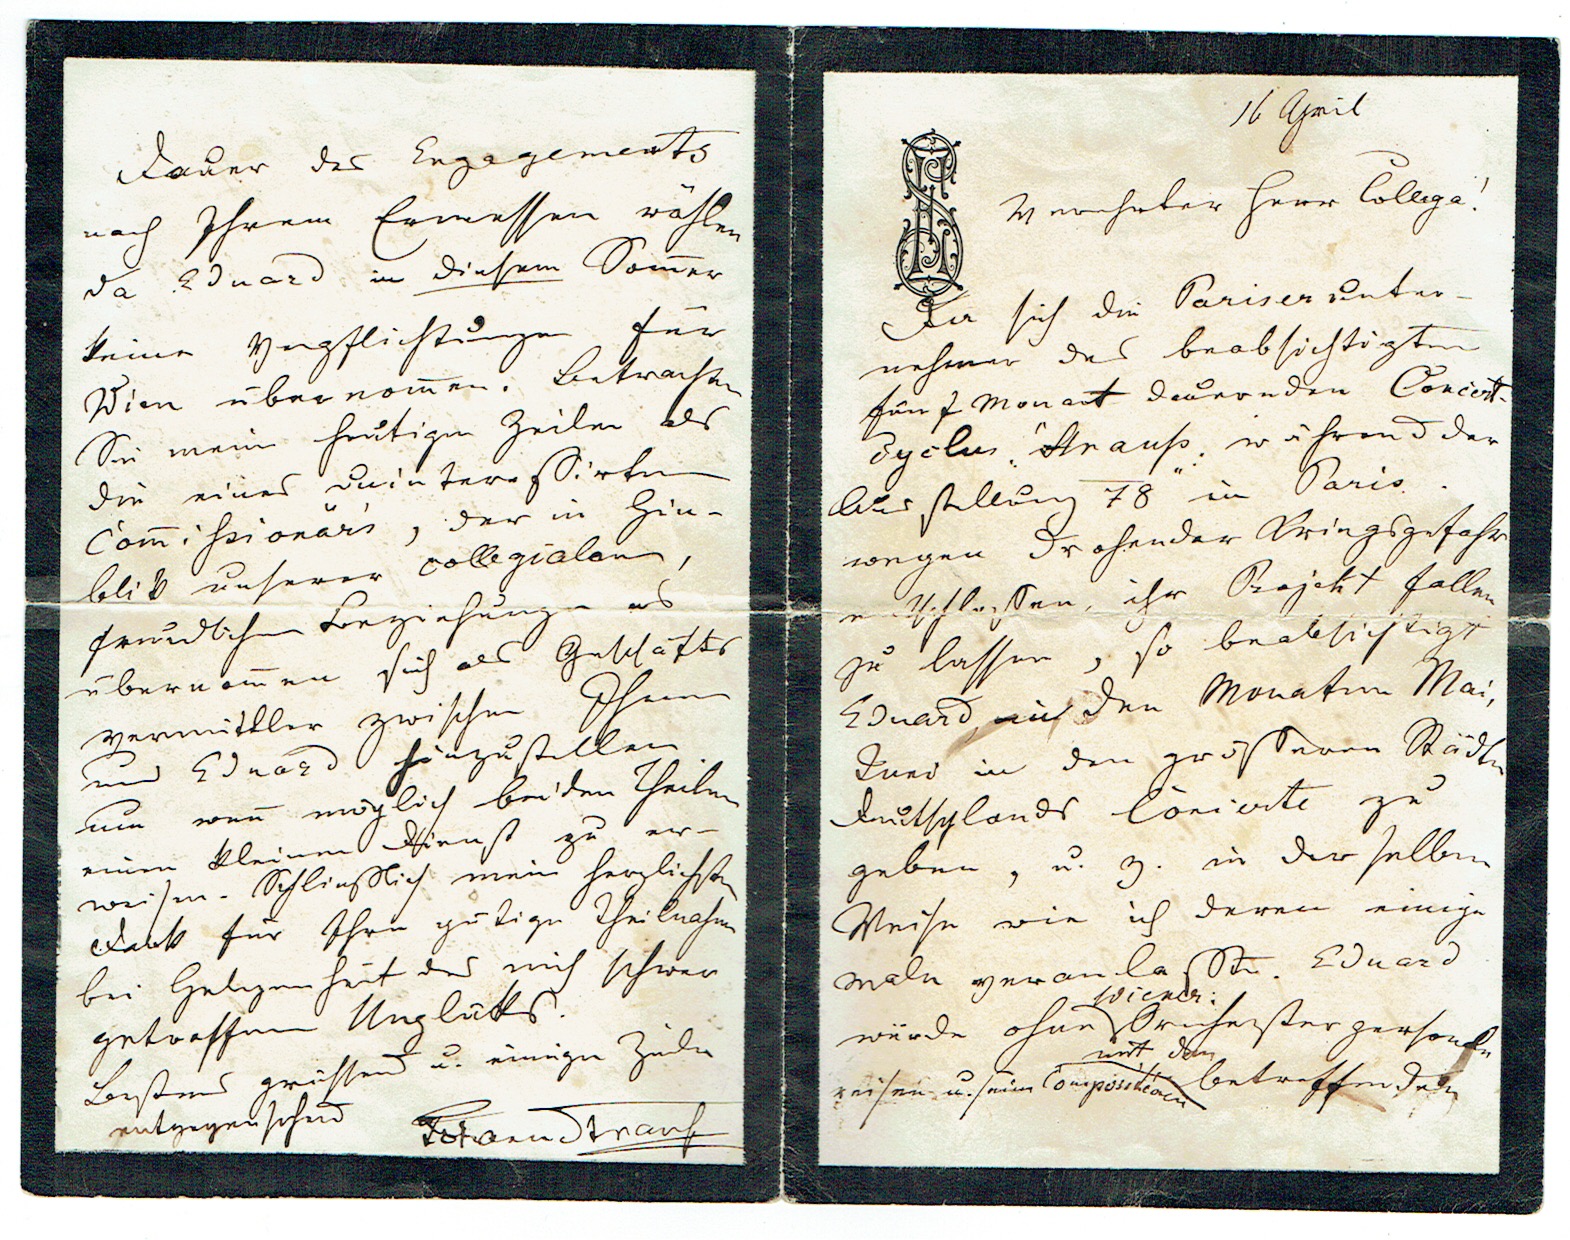 16 April
Verehrter Herr Collega!
Da sich die Pariser unter-
nehmer des beabsichtigten
fünf Monat dauernden Concert-
cyclus "Strauss" während der
Ausstellung 78 in Paris
wegen drohender Kriegsgefahr
entschlossen, ihr Projekt fallen
zu lassen, so beabsichtigt
Eduard in den Monaten Mai,
Juni in den grösseren Städten
Deutschlands Concerte zu
geben, u. z. in derselben
Weise wie ich deren einige
male veranlasste. Eduard
würde ohne Wiener Orchesterpersonale
reisen u. seine Compositionen mit den betreffenden
Dauer des Engagements
nach Ihrem Ermessen wählen
da Eduard in diesem Sommer
keine Verpflichtungen für
Wien übernommen. Betrachten
Sie meine heutigen Zeilen als
die eines uninteressirten
Commissionärs, der in Hin-
blick unserer collegialen,
freundlichen Beziehungen es
übernommen sich als Geschäfts
vermittler zwischen Ihnen
und Eduard hinzustellen
um wenn möglich beiden Theilen
einen kleinen Dienst zu er-
weisen. Schliesslich meinen herzlichsten
Dank für Ihre gütige Theilnahme
bei Gelegenheit des mich schwer
getroffenen Unglücks.
Bestens grüssend u. einigen Zeilen
entgegensehend
Johann Strauss